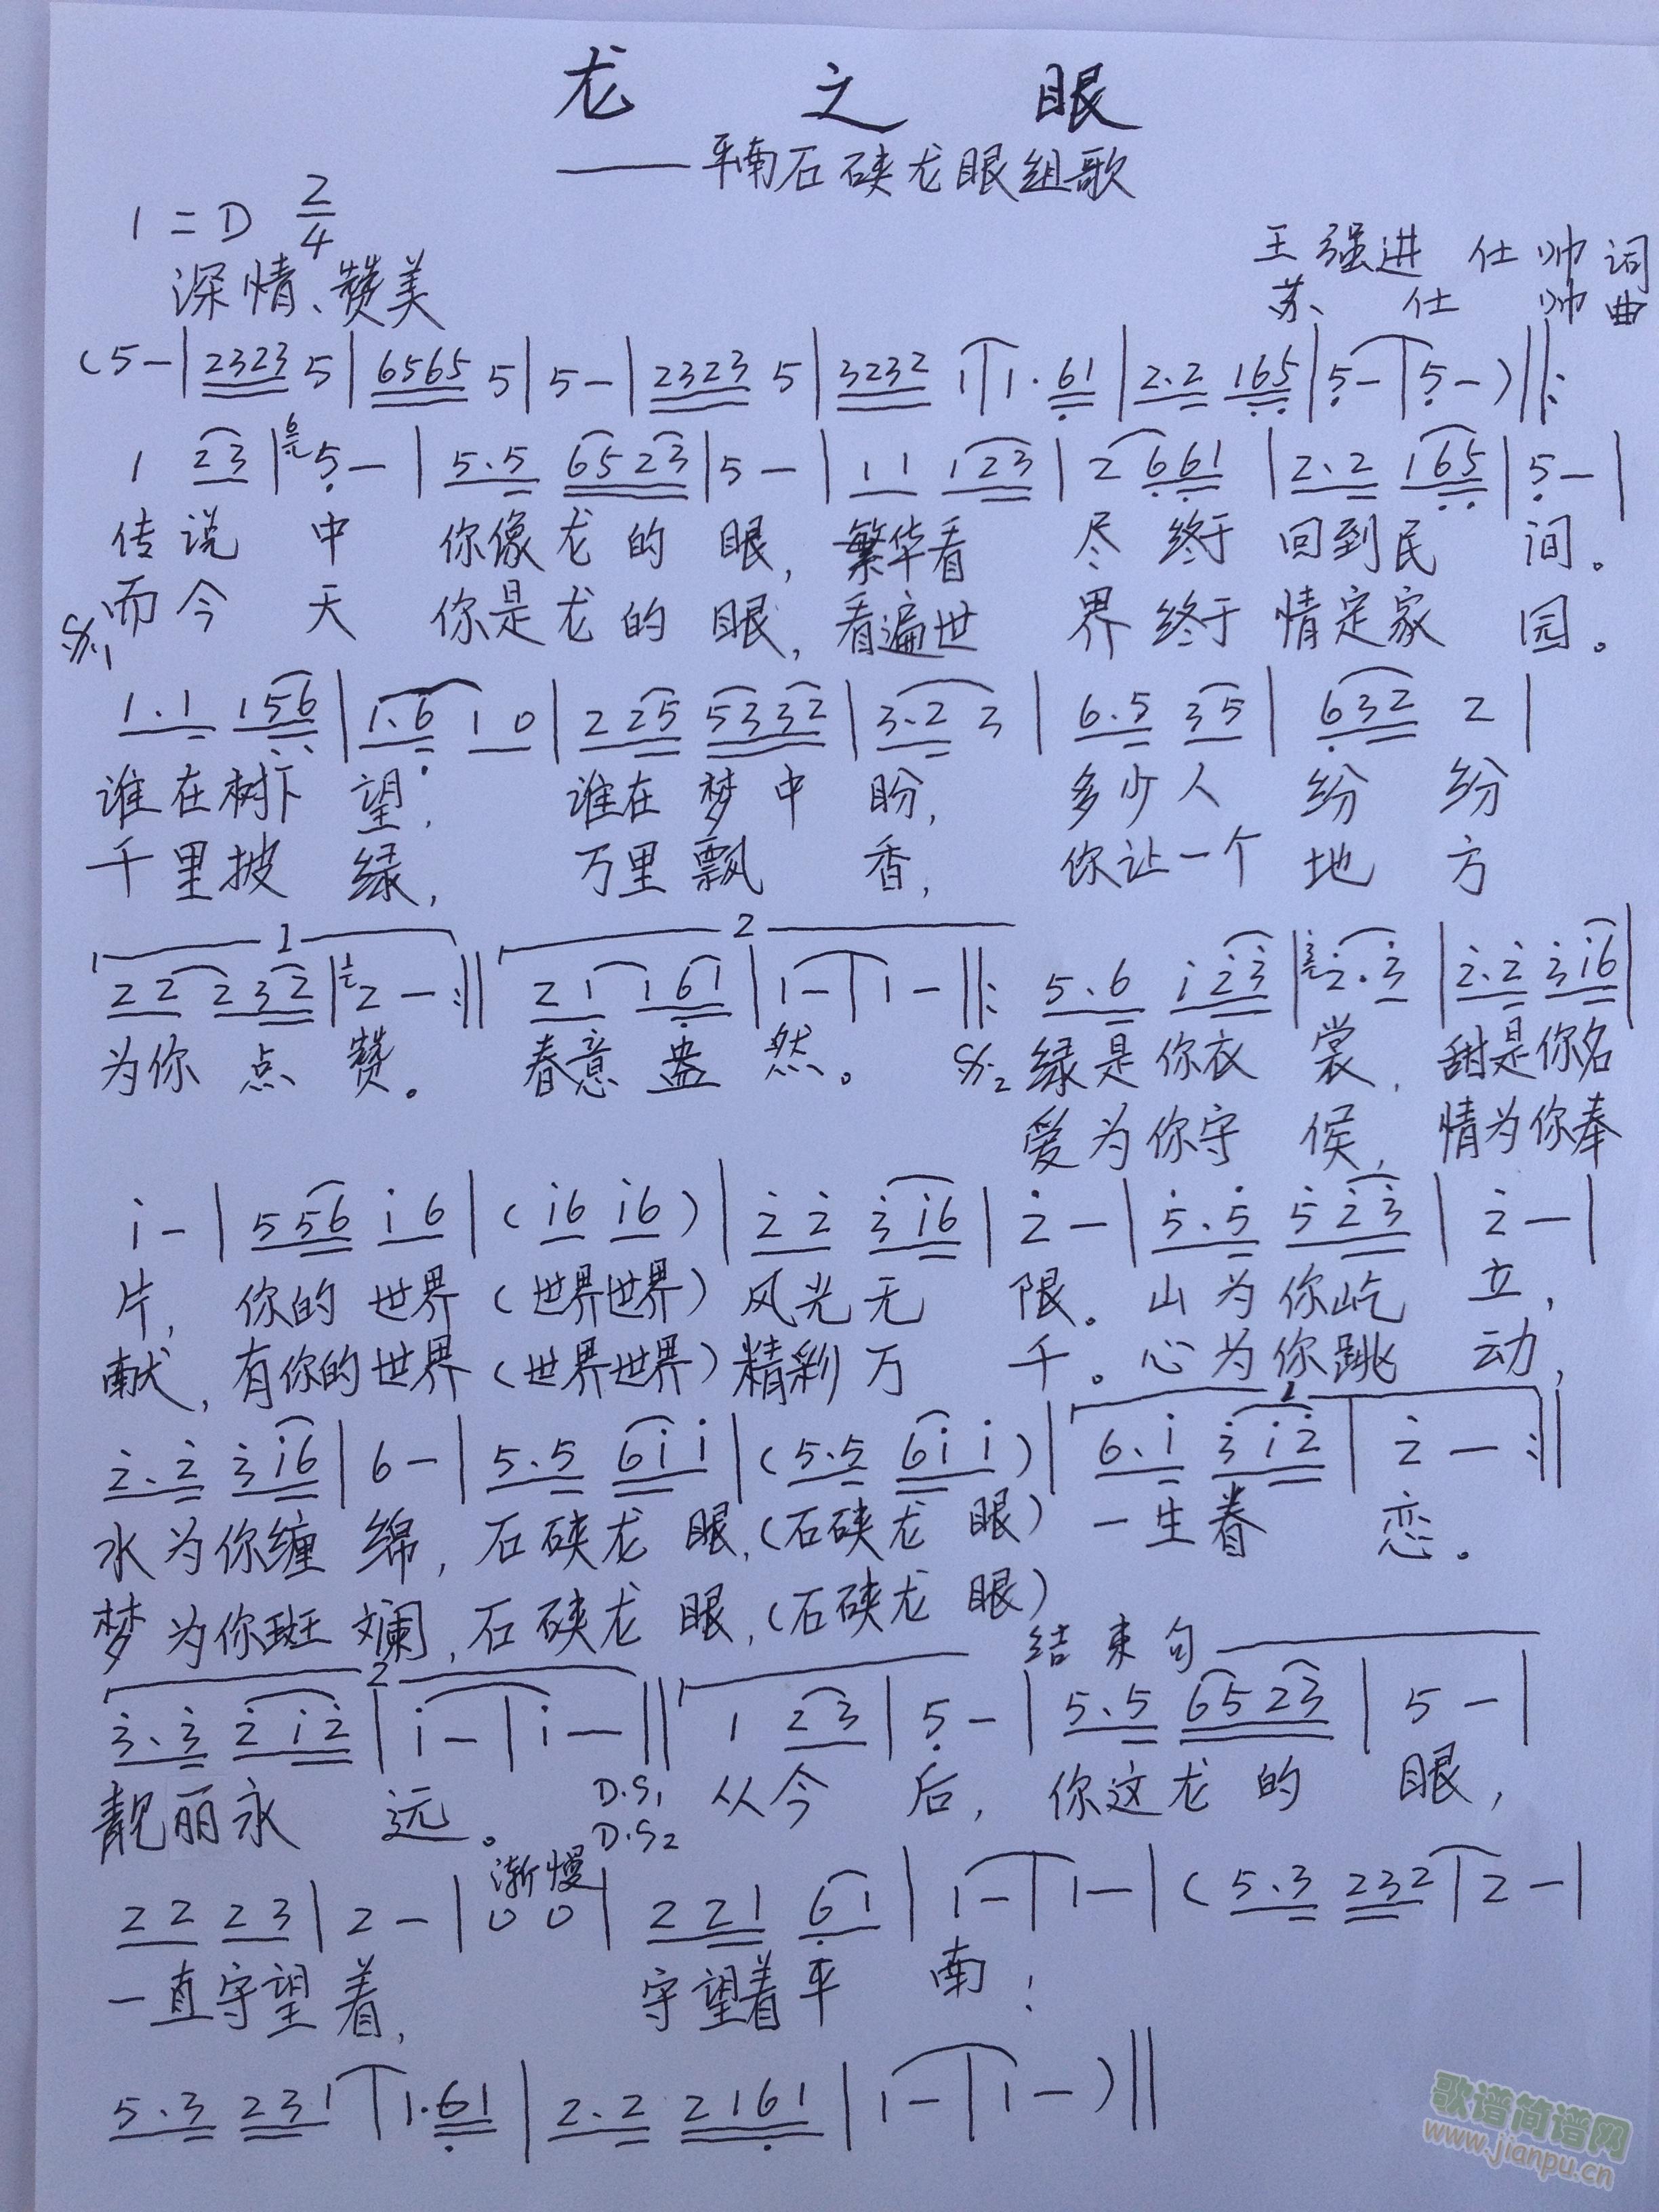 龙之眼
——平南石硖龙眼组歌
1=D 2/4
深情、赞美
王强进 仕帅词
苏仕帅曲
(5-|2323 5|6565 5|5-|2323 5|3232 1|1·61|2·2 165|5-|5-)‖:
1 23|5-|5·5 6523|5-|11 123|2 661|2·2 165|5-|
传说中 你像龙的眼,繁华看尽 终于回到民间。
而今天 你是龙的眼,看遍世界 终于情定家园。
1·1 156|1·6 10|2 25 5332|3·2 3|6·5 35|632 2|
谁在树下望, 谁在梦中盼, 多少人纷纷
千里披绿, 万里飘香, 你让一个地方
1 2
22 232|2-:‖21 161|1-|1-‖: 5·6 123|2·3|2·2 316|
为你点赞。 春意盎然。 绿是你衣裳,甜是你名
爱为你守侯,情为你奉
1-|556 16|(16 16)|22 316|2-|5·5 523|2-|
片, 你的世界(世界世界)风光无限。山为你屹立,
献,有你的世界(世界世界)精彩万千。心为你跳动,
1
2·2 316|6-|5·5 611|(5·5 611)|6·1 312|2-:‖
水为你缠绵,石硖龙眼,(石硖龙眼)一生眷恋。
梦为你斑斓,石硖龙眼,(石硖龙眼)
2 结束句
3·3 212|1-|1-‖1 23|5-|5·5 6523|5-|
靓丽永远。 D.S1 从今后, 你这龙的眼,
D.S2
渐慢
22 23|2-|00|221 61|1-|1-|(5·3 232|2-|
一直守望着, 守望着平南!
5·3 231|1·61|2·2 2161|1-|1-)‖
歌谱简谱网
www.jianpu.cn